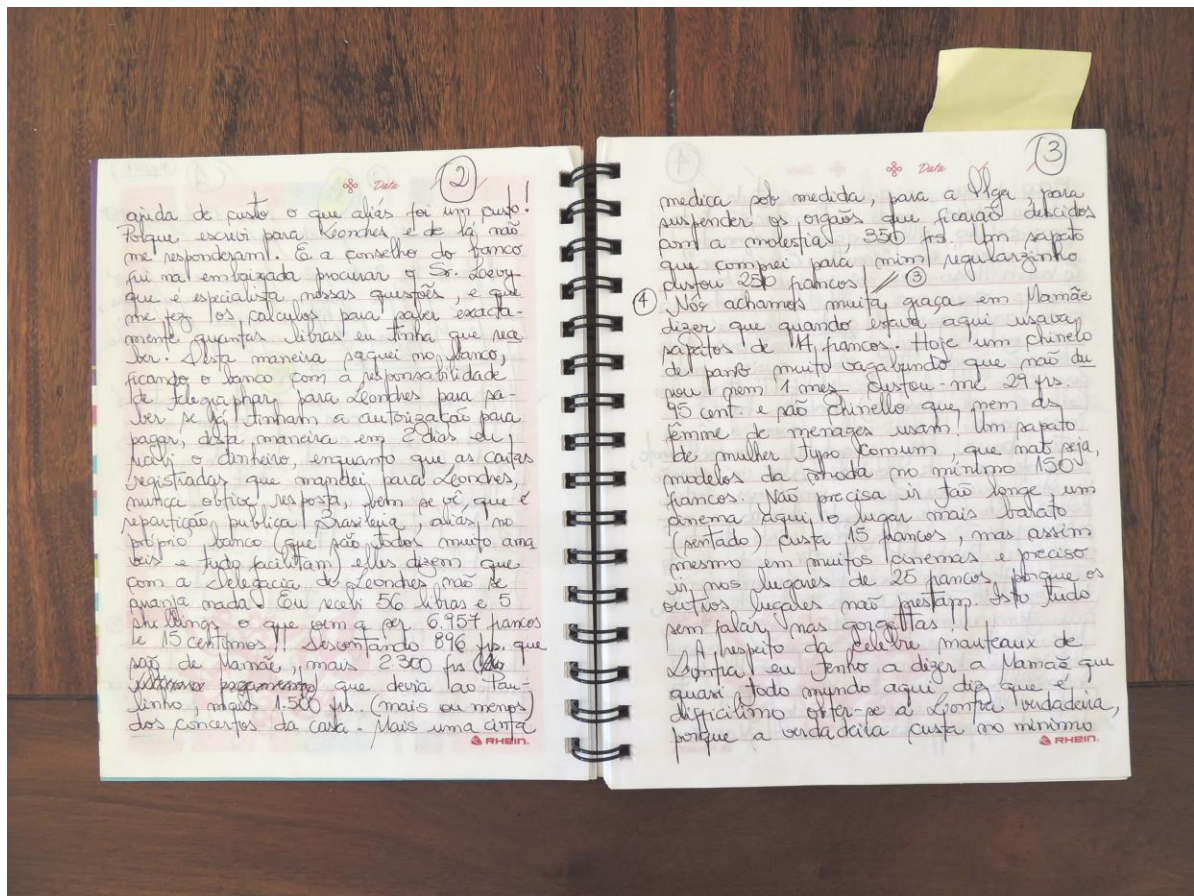 Data
2
ajuda de custo o que aliás foi um custo!
Porque escrevi para Leondres e de lá não
me responderam. E a conselho do banco
fui na embaizada procurar o Sr. Loevy
que é especialista nessas questões, e que
me fez os calculos para saber exacta-
mente quantas libras eu tinha que rece
ber. Desta maneira saquei no banco,
ficando o banco com a responsabilidade
de telegraphar para Leondres para sa-
ber se lá tinham a autorização para
pagar, desta maneira em 2 dias eu
recebi o dinheiro, enquanto que as cartas
registradas que mandei para Leondres,
nunca obtive resposta, bem se vê, que é
repartição publica Brasileira, aliás no
próprio banco (que são todos muito ama
veis e tudo facilitam) elles dizem que
com a Delegacia de Leondres não se
arranja nada. Eu recebi 56 libras e 5
shellings o que vem a ser 6.957 francos
e 15 centimos!! Descontando 896 frs. que
são de Mamãe, mais 2.300 frs
pagamento que devia ao Pau-
linho, mais 1.500 frs. (mais ou menos)
dos concertos da casa. Mais uma cinta
RHEIN.
Data
3
medica sob medida, para a Olga, para
suspender os orgãos que ficarão descidos
com a molestia, 350 frs. Um sapato
que comprei para mim regularzinho
custou 250 francos! // 3
4 Nós achamos muita graça em Mamãe
dizer que quando estava aqui usava
sapatos de 14 francos. Hoje um chinelo
de panno muito vagabundo que não du
rou nem 1 mes custou-me 29 frs.
95 cent. e são chinello que nem as
fêmme de menages usam! Um sapato
de mulher typo comum, que não seja,
modelos da moda no mínimo 150
francos. Não precisa ir tão longe um
cinema aqui o lugar mais barato
(sentado) custa 15 francos, mas assim
mesmo em muitos cinemas e preciso
ir nos lugares de 25 francos, porque os
outros lugares não prestam. Isto tudo
sem falar nas gorgettas!!
A respeito da celebre manteaux de
Lontra eu tenho a dizer a Mamãe que
quasi todo mundo aqui diz que é
difficilimo obter-se a Lontra verdadeira,
porque a verdadeira custa no mínimo
RHEIN.